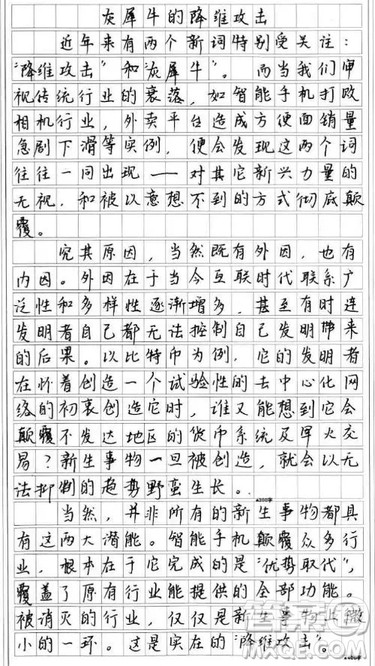 灰犀牛的降维攻击
近年来有两个新词特别受关注：
“降维攻击”和“灰犀牛”。而当我们审
视传统行业的衰落，如智能手机打败
相机行业，外卖平台造成方便面销量
急剧下滑等实例，便会发现这两个词
往往一同出现——对其它新兴力量的
无视，和被以意想不到的方式彻底颠
覆。
究其原因，当然既有外因，也有
内因。外因在于当今互联时代联系广
泛性和多样性逐渐增多，甚至有时连
发明者自己都无法控制自己发明带来
的后果。以比特币为例，它的发明者
在怀着创造一个试验性的去中心化网
络的初衷创造它时，谁又能想到它会
颠覆不发达地区的货币系统及早火交
局？新生事物一旦被创造，就会以无
法抑制的趋势野蛮生长。
当然，并非所有的新生事物都具
有这两大潜能。智能手机颠覆众多行
业，根本在于它完成的是“优势取代”，
覆盖了原有行业能提供的全部功能。
被消灭的行业，仅仅是新生事物上微
小的一环。这是实在的“降维攻击”。